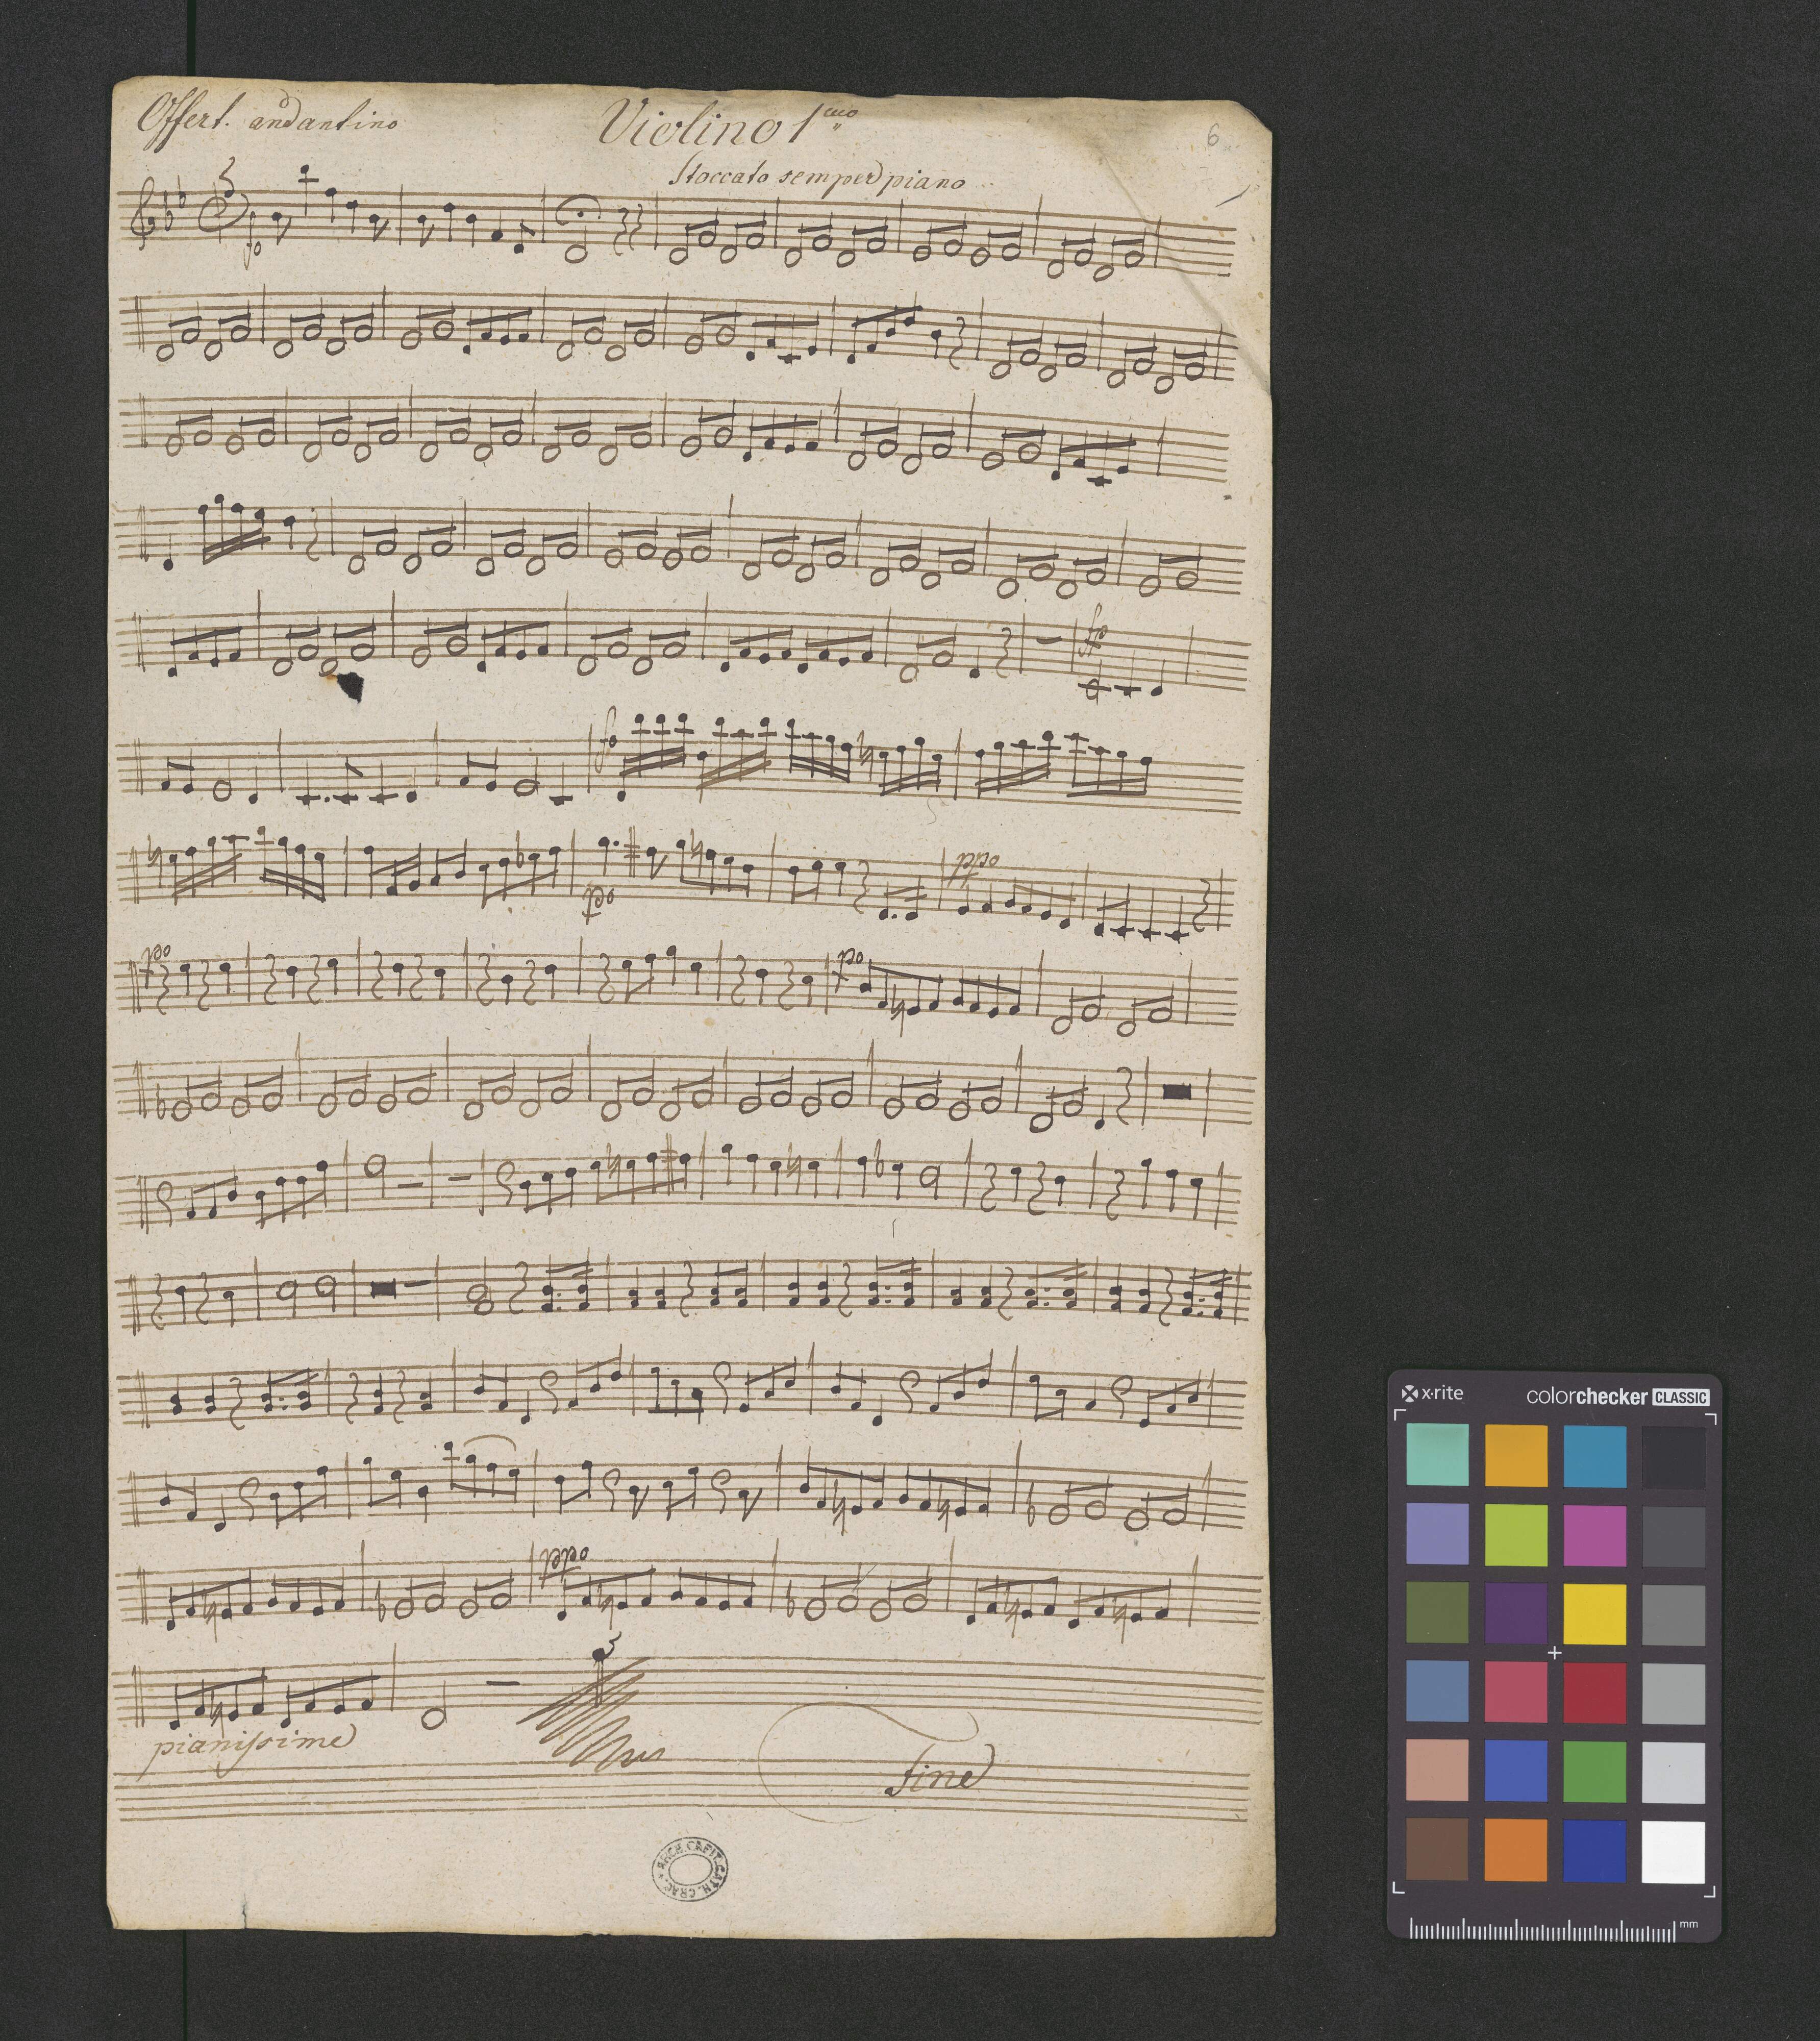 Offert. andantino Violino 1mo 6
Stoccato semper piano
fo
fp
fo
ppo
po
pianissime
Fine
ARCH. CAPIT. CATH. CRAC.
x-rite colorchecker CLASSIC
mm